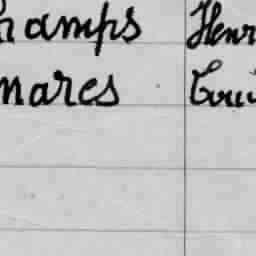 hamps Henr
mares Loui